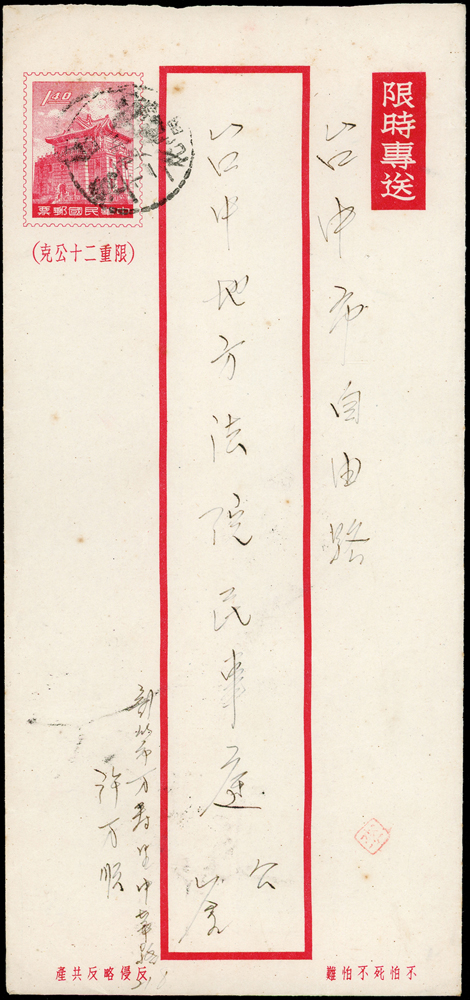 限時專送
台中市自由路
台中地方法院民事庭
公啓
1.40
票郵國民華中
(限重二十公克)
許万順
難怕不死怕不
產共反略侵反